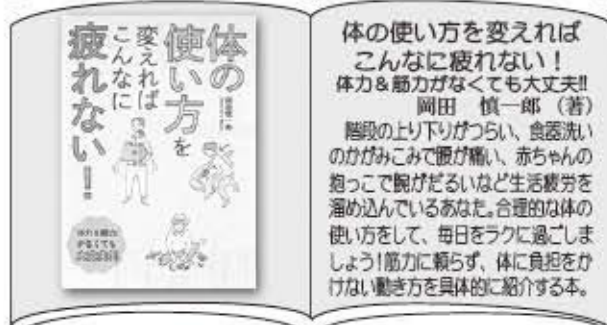 体の
使い方を
変えれば
こんなに
疲れない!
体力&筋力
がなくても
体の使い方を変えれば
こんなに疲れない!
体力&筋力がなくても大丈夫!!
岡田 慎一郎 (著)
階段の上り下りがつらい、食器洗い
のかがみこみで腰が痛い、赤ちゃんの
抱っこで腕がだるいなど生活疲労を
溜め込んでいるあなた。合理的な体の
使い方をして、毎日をラクに過ごしま
しょう!筋力に頼らず、体に負担をか
けない動き方を具体的に紹介する本。